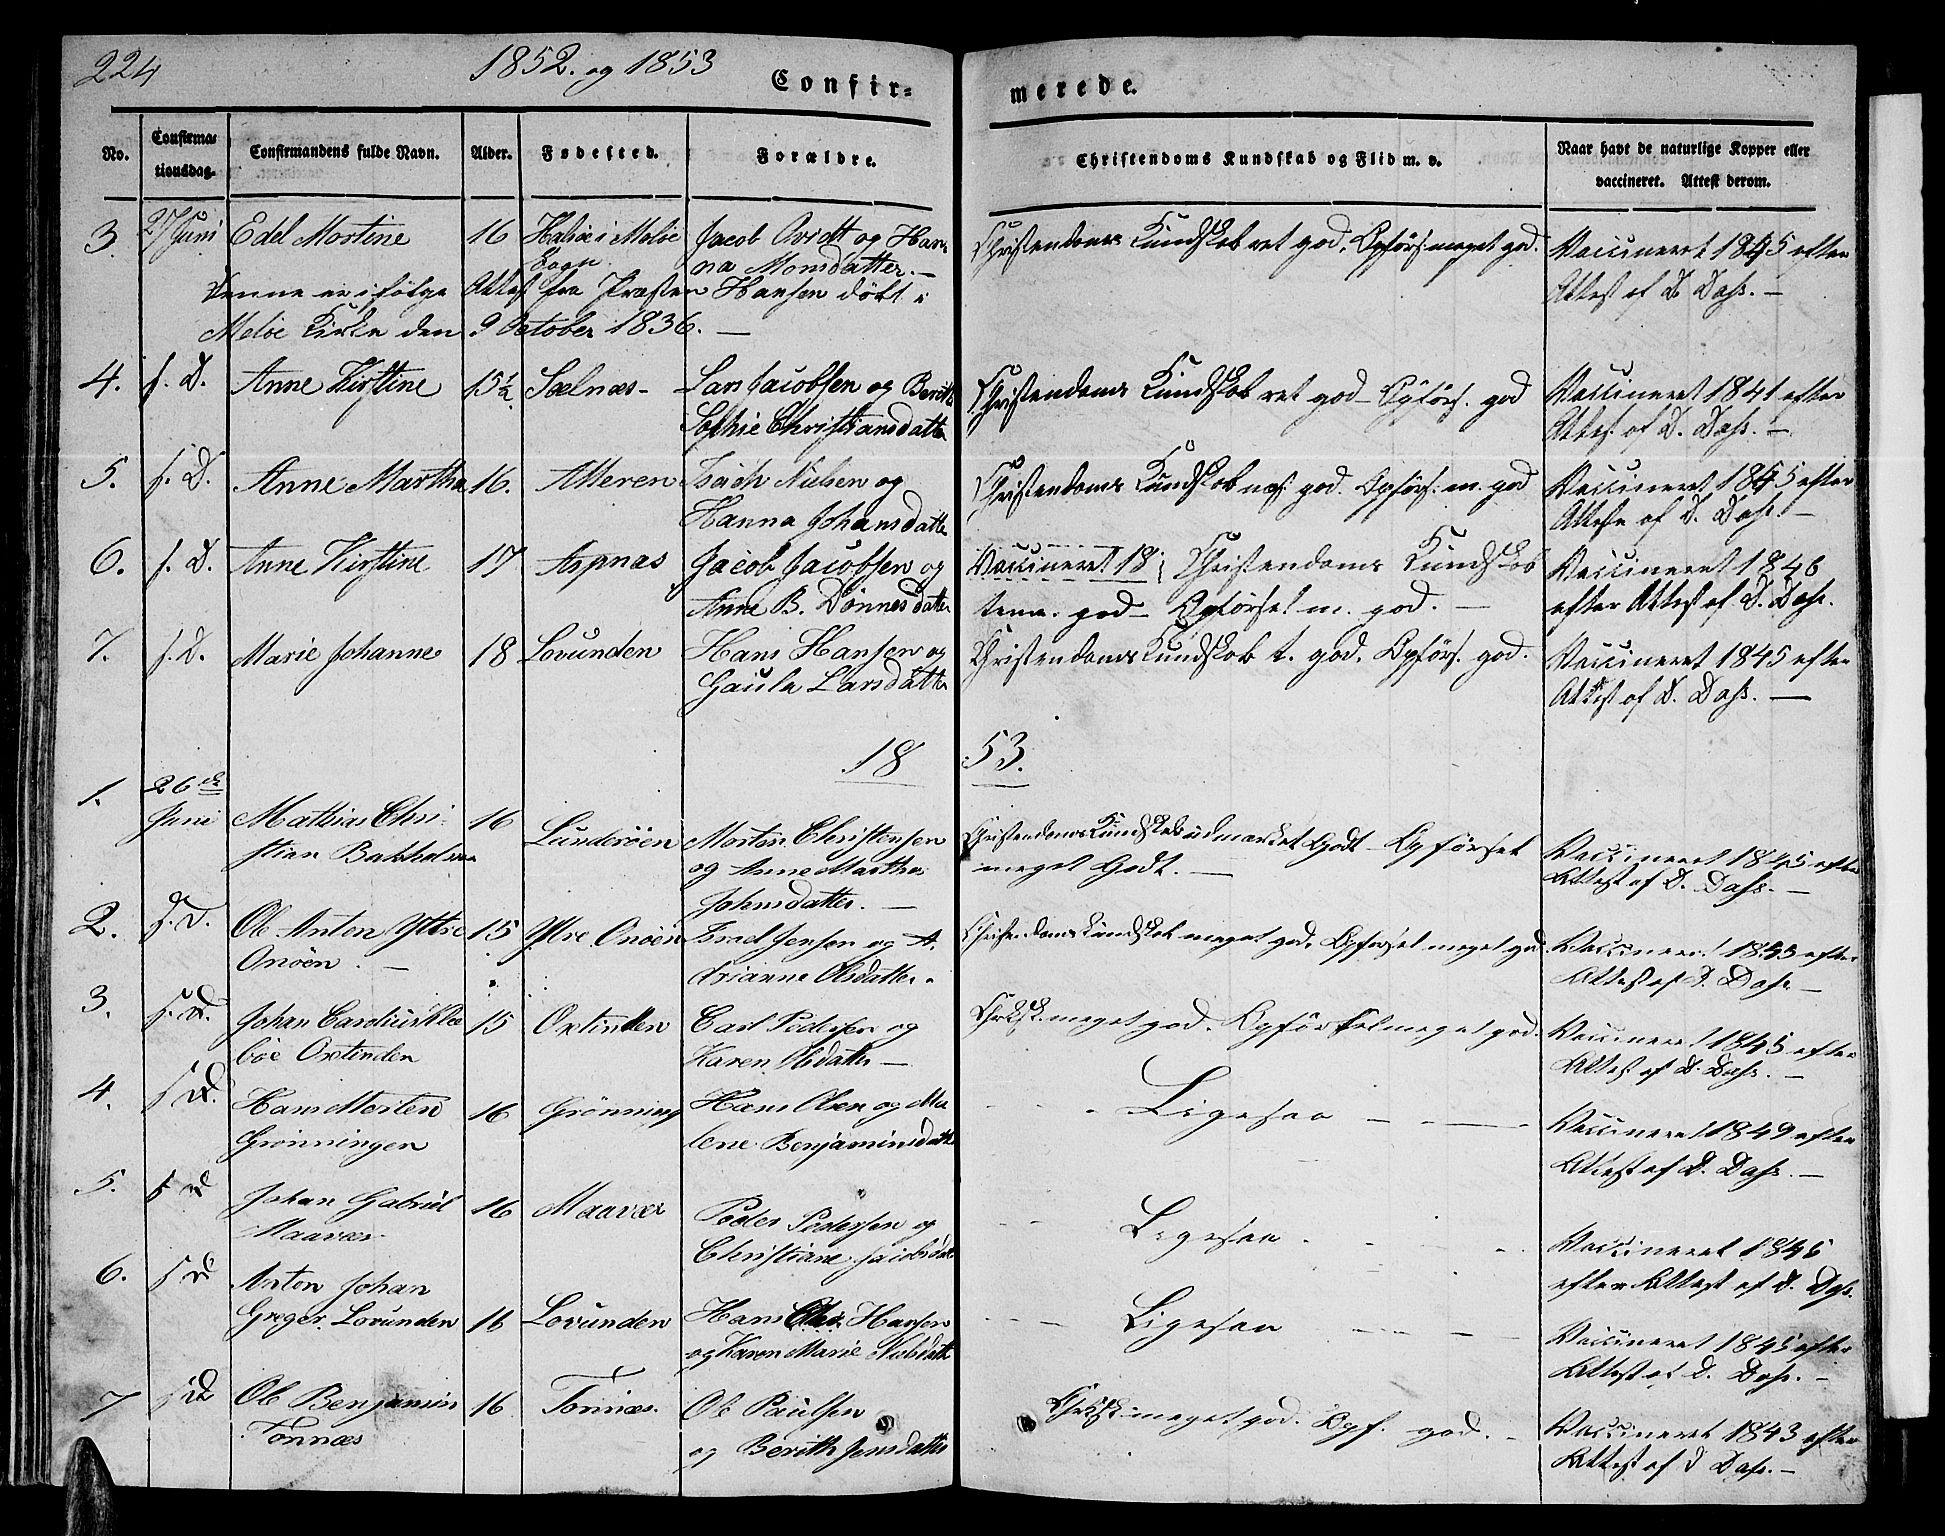 224
1852. og 1853
Confir=
merede.
No.
Confirma=
tionsdag.
Confirmandens fulde Navn.
Alder.
Fødested.
Forældre.
Christendoms Kundskab og Flid m. v.
Naar havt de naturlige Kopper eller
vaccineret. Attest derom.
3 27 Juni Edel Mostine 16 Halsæ i Meløe Jacob Qvidt og Han= Christendoms Kundskab ret god. Opførs. meget god. Vaccineret 1845 efter
Sogn. na Monsdatter. — Attest af D. Dass. —
Denne er ifølge Attest fra Præsten Hansen døbt i
Meløe Kirke den 9 October 1836. —
4. s. D. Anne Kirstine 15½ Sælnæs - Lars Jacobsen og Berith Christendoms Kundskab ret god - Opførs. god Vaccineret 1841 efter
Sophie Christiansdatter Attes. af D. Dass. —
5. s. D. Anne Martha 16. Alteren Isach Nielsen og Christendoms Kundskab god. Opførs. m. god Vaccineret 1845 efter
Hanna Johansdatter af D. Dass. —
6. s. D. Anne Kirstine 17 Aspnæs Jacob Jacobsen og Vaccineret 18 Christendoms Kundskab Vaccineret 1846
Anne B. Dönnesdatter tem. god - Opførsel m. god. — efter Attest af D. Dass.
7. s. D. Marie Johanne 18 Lovunden Hans Hansen og Christendoms Kundskab t. god. Opførs. god. Vaccineret 1845 efter
Gaula Larsdatter Attest af D. Dass. —
18 53.
1. 26de
Juni Mathias Chri= 16 Lunderöen Morten Christensen Christendoms Kundskab udmærket Godt - Opførsel Vaccineret 1845 efter
stian Bakholmen og Anne Martha meget Godt. — Attest af D. Dass. —
Johnsdatter. —
2. s. D. Ole Anton Yttre 15 Ytre Onöen Israel Jensen og A= Christendoms Kundskab meget god. Opførsel meget god Vaccineret 1845 efter
Onöen. — drianne Olsdatter. Attest af D. Dass —
3. s. D. Johan Cardius Klæ 15 Oxtinden Carl Pedersen og Chr. Ksk. meget god. Opførsel meget god. Vaccineret 1845 efter
böe Oxtinden Karen Olsdatter — Attest af D. Dass. —
4. s D. Hans Morten 16 Grönning Hans Olsen og Ma Ligesaa — Vaccineret 1849 efter
Grönningen lene Benjaminsdatter Attest af D. Dass. —
5. s D Johan Gabriel 16 Maavær Peder Pedersen og Ligesaa Vaccineret 1846
Maavær Christiane Jacobsdatter efter Attest af D. Dass.
6. s D Anton Johan
Greger Lovunden 16 Lovunden Hans Chr. Hansen Ligesaa Vaccineret 1845 efter
og Karen Marie Nielsdatter Attest af D. Dass. —
7 s D Ole Benjamin 16 Tonnæs. Ole Paulsen Chr. Ksk. meget god. Opf. god. — Vaccineret 1843 efter
Tonnæs og Berith Jensdatter Attest af D Dass. —